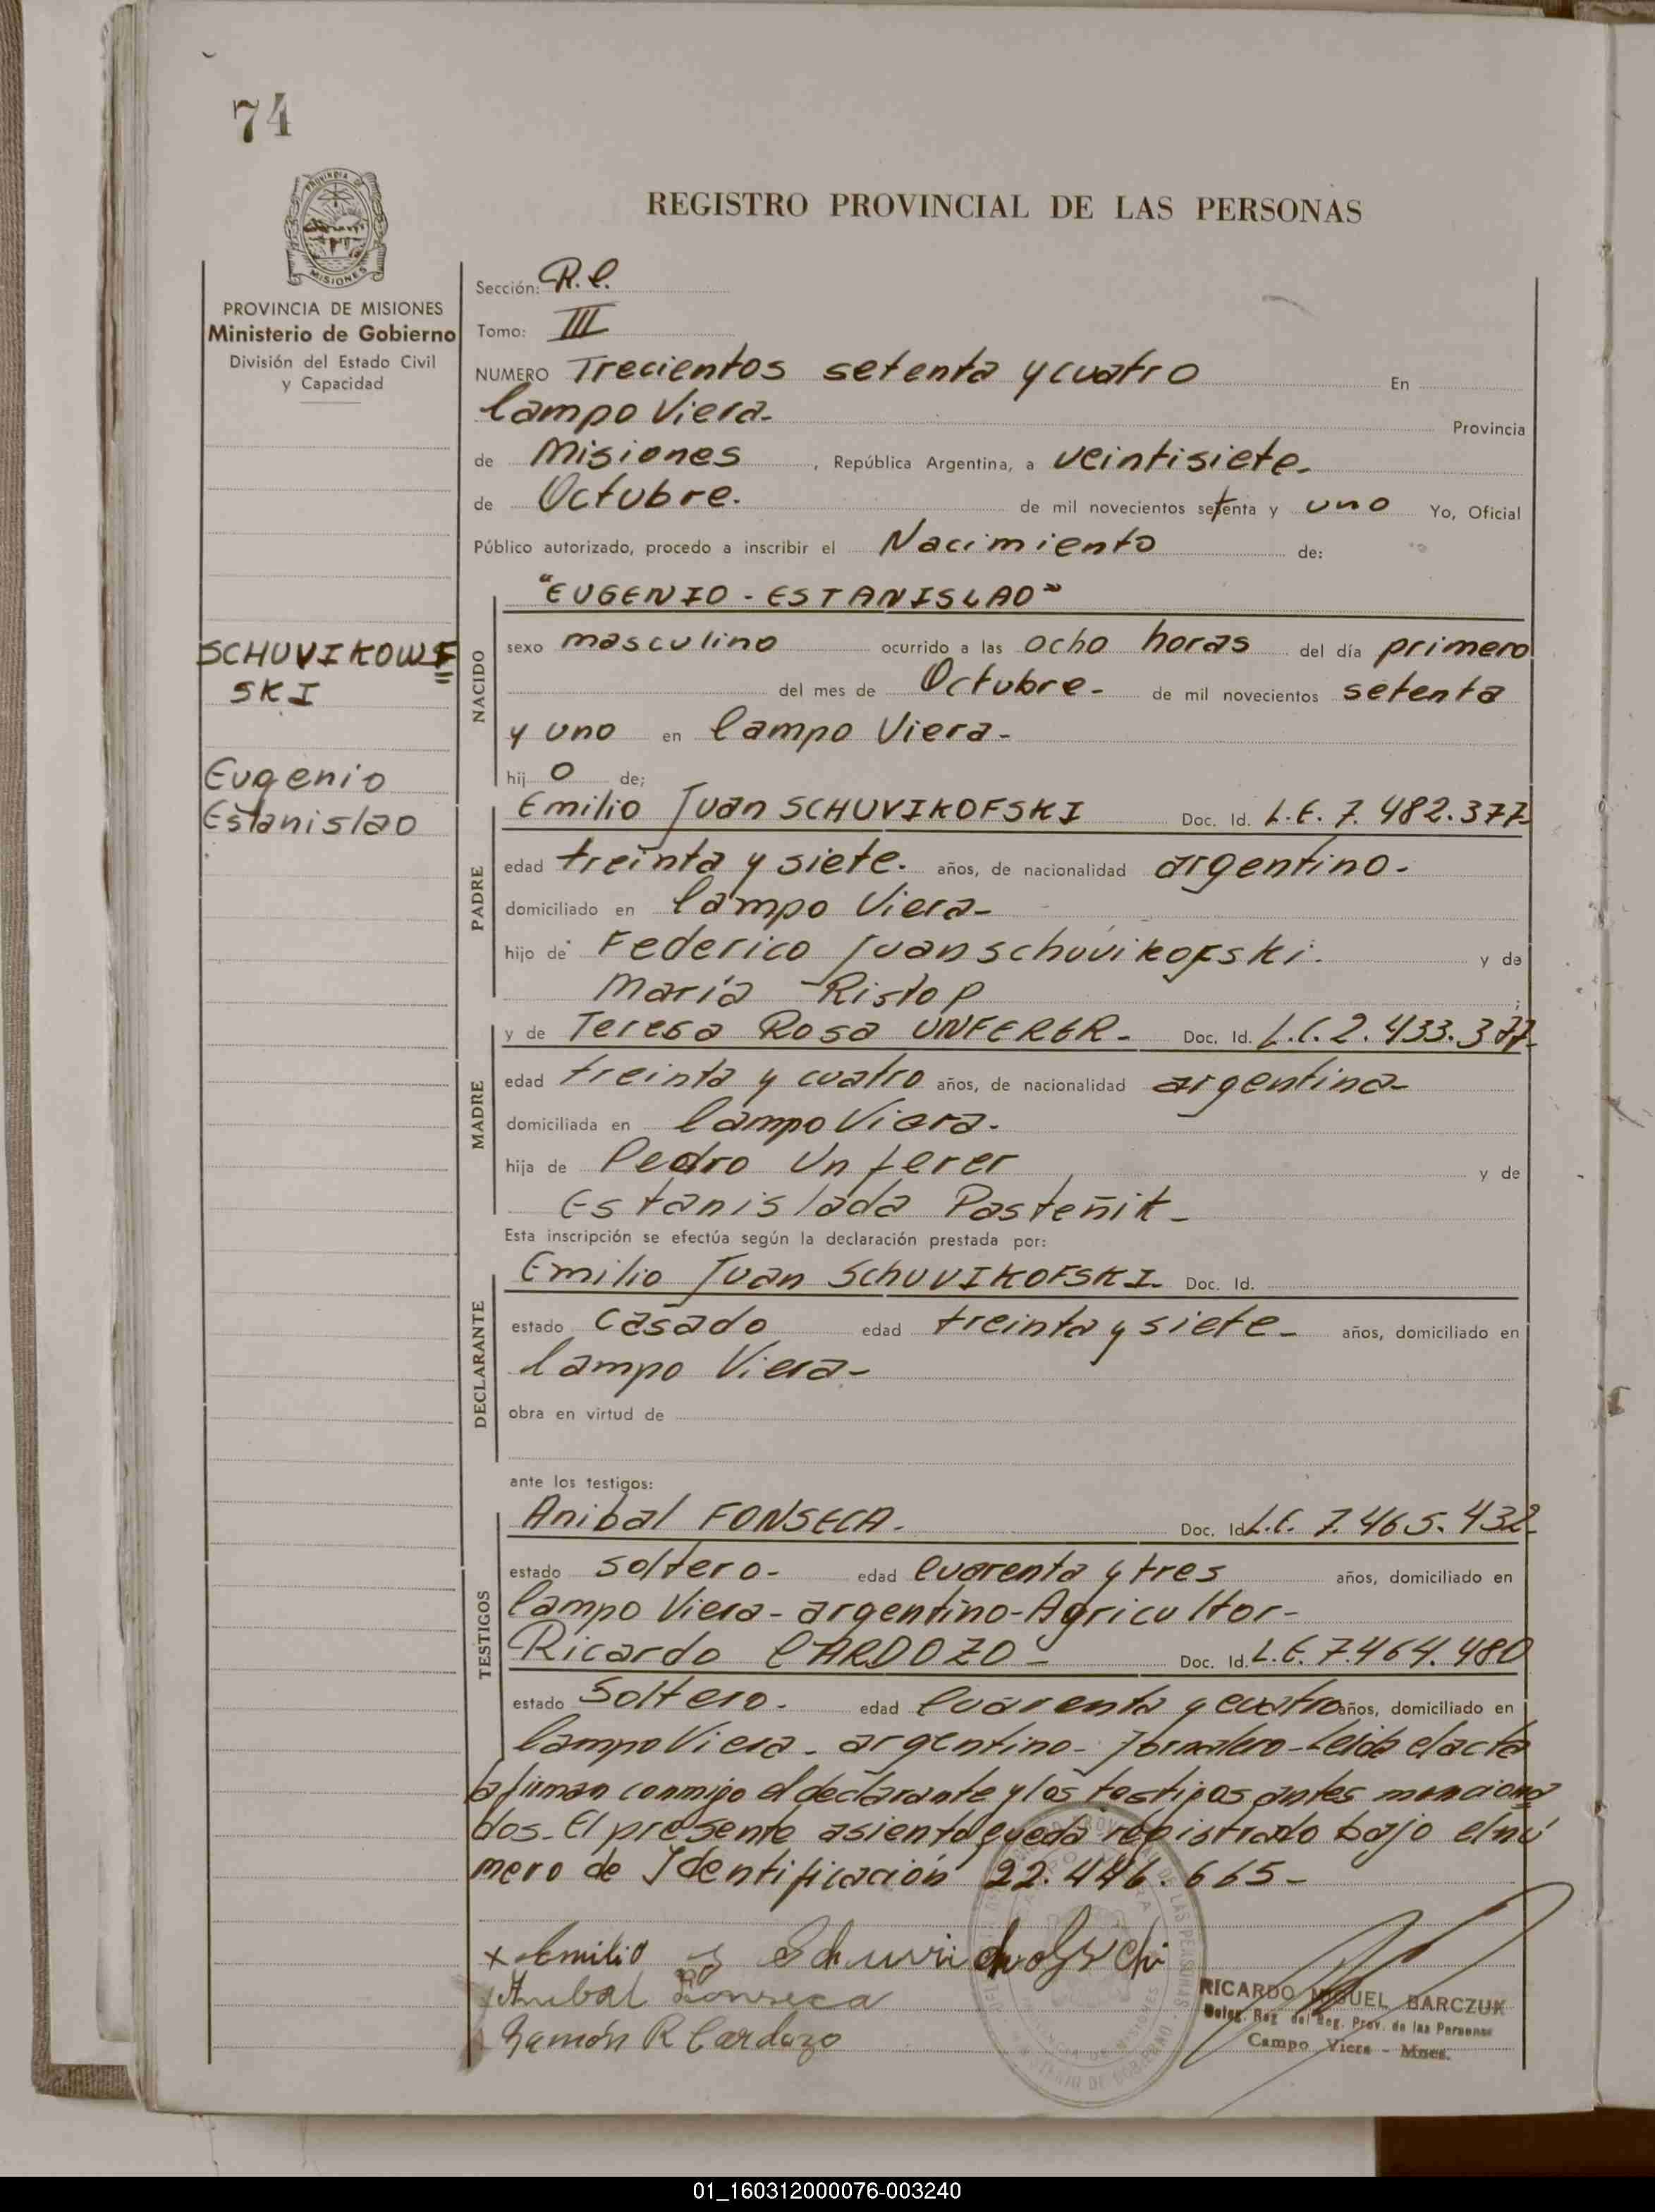 74
PROVINCIA DE
MISIONES
REGISTRO PROVINCIAL DE LAS PERSONAS
PROVINCIA DE MISIONES
Ministerio de Gobierno
División del Estado Civil
y Capacidad
SCHUVIKOWF
SKI
Eugenio
Estanislao
Sección: R.C.
Tomo: III
NUMERO Trecientos setenta y cuatro En
Campo Viera- Provincia
de Misiones , República Argentina, a veintisiete-
de Octubre. de mil novecientos setenta y uno Yo, Oficial
Público autorizado, procedo a inscribir el Nacimiento de:
NACIDO
"EUGENIO - ESTANISLAO"
sexo masculino ocurrido a las ocho horas del día primero
del mes de Octubre- de mil novecientos setenta
y uno en Campo Viera-
hij o de;
PADRE
Emilio Juan SCHUVIKOFSKI Doc. Id. L.E. 7.482.377-
edad treinta y siete- años, de nacionalidad argentino-
domiciliado en Campo Viera-
hijo de Federico Juan schuvikofski. y de
María Ristop ;
MADRE
y de Teresa Rosa UNFERER- Doc. Id. L.C. 2.433.377-
edad treinta y cuatro años, de nacionalidad argentina-
domiciliada en Campo Viera-
hija de Pedro Unferer y de
Estanislada Pasteñik-
Esta inscripción se efectúa según la declaración prestada por:
DECLARANTE
Emilio Juan SchUVIKOFSKI- Doc. Id.
estado casado edad treinta y siete- años, domiciliado en
Campo Viera-
obra en virtud de
ante los testigos:
TESTIGOS
Anibal FONSECA- Doc. Id. L.E. 7.465.432-
estado soltero- edad cuarenta y tres años, domiciliado en
Campo Viera- argentino-Agricultor-
Ricardo CARDOZO- Doc. Id. L.E. 7.464.480
estado Soltero- edad Cuarenta y cuatro años, domiciliado en
Campo Viera- argentino- Jornalero- Leida el acta
la firman conmigo el declarante y los testigos antes menciona
dos- El presente asiento queda registrado bajo el nú
mero de Identificación 22.446.665-
x Emilio J Schuvichofschi
Anibal Fonseca
Ramón R Cardozo
RICARDO MIGUEL BARCZUK
Deleg. Reg. del Reg. Prov. de las Personas
Campo Viera - Mnes.
01_160312000076-003240